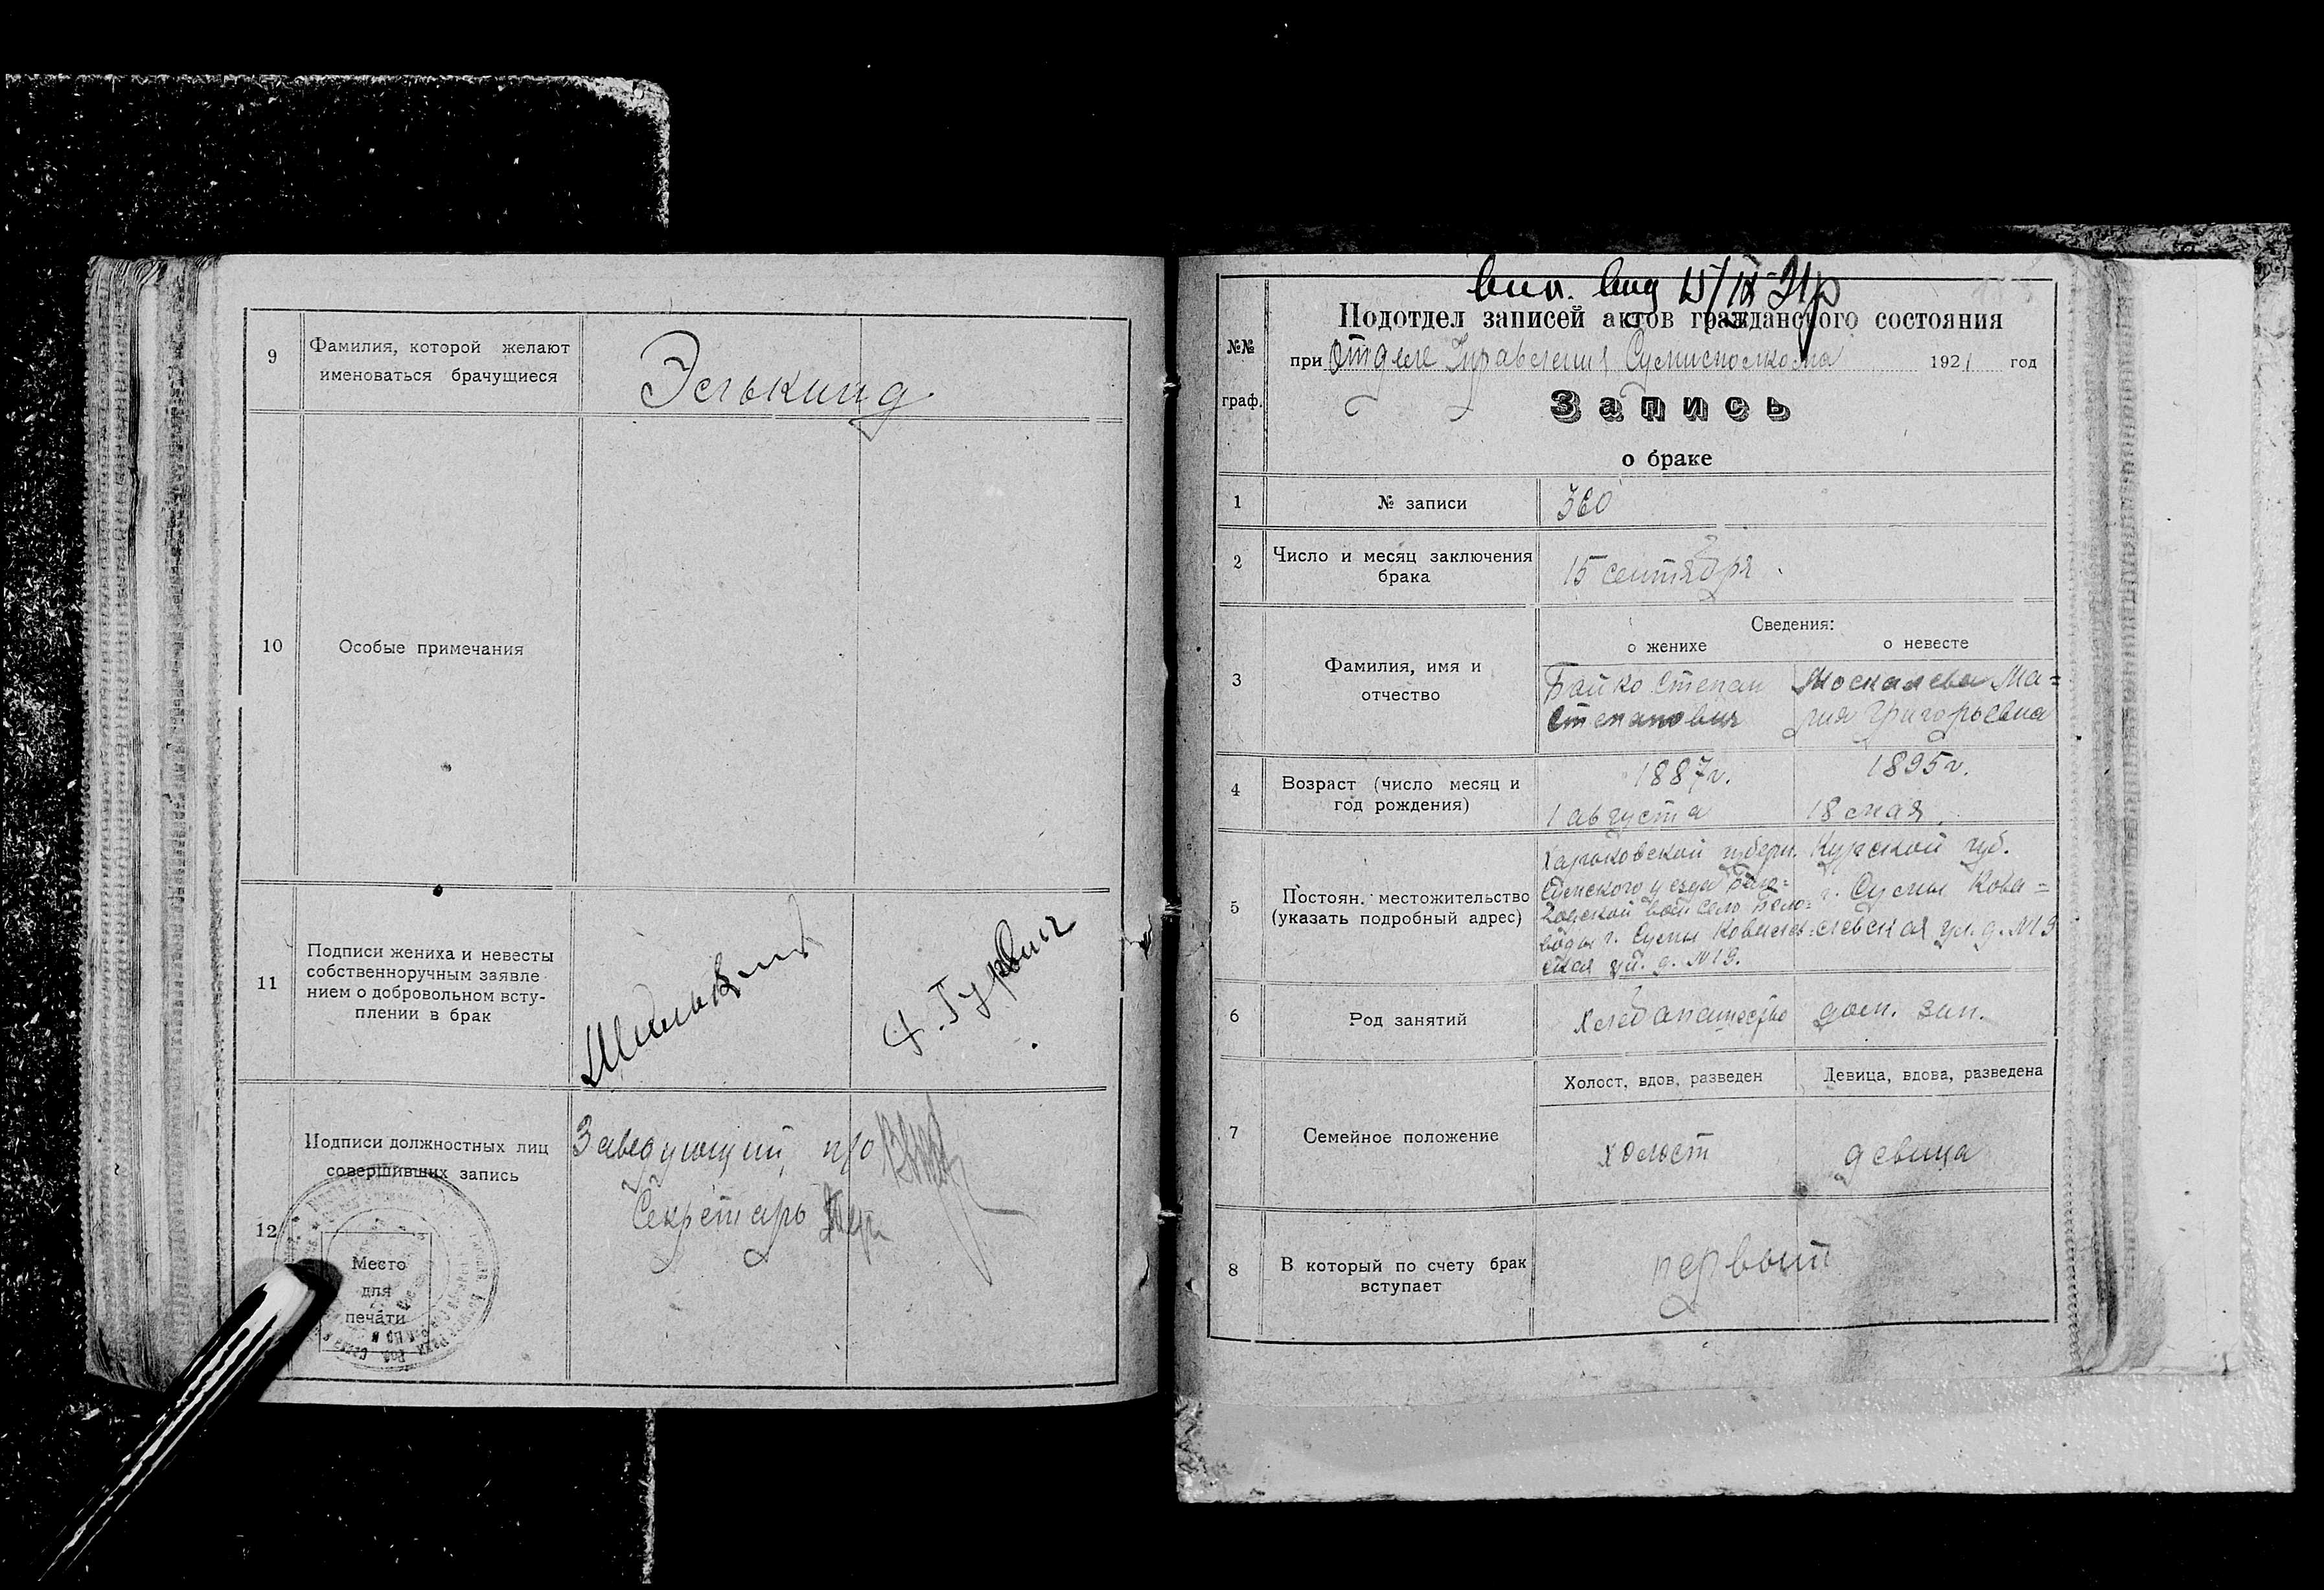 9
Фамилия, которой желают
именоваться брачущиеся
Элькинд
10
Особые примечания
11
Подписи жениха и невесты
собственноручным заявле-
нием о добровольном всту-
плении в брак
Ф. Гурвич
Подписи должностных лиц
совершивших запись
12
Место
для
печати
Заведующий п/о
Секретарь
вид 15/IX 21
№№
граф.
Подотдел записей актов гражданского состояния
при Отделе Управления Сумисполкома 1921 год
Запись
о браке
1
№ записи
360
2
Число и месяц заключения
брака
15 сентября
Сведения:
о женихе
о невесте
3
Фамилия, имя и
отчество
Бойко Степан
Степанович
Москалева Ма=
рия Григорьевна
4
Возраст (число месяц и
год рождения)
1887 г.
1 августа
1895 г.
18 мая
5
Постоян. местожительство
(указать подробный адрес)
Харьковской губерн.
Сумского уезда Бело=
водской вол. село Бело=
воды г. Сумы Ковалев=
ская ул. д. №19.
Курской губ.
г. Сумы Кова=
левская ул. д. №19
6
Род занятий
Хлебопашество
дом. зан.
7
Семейное положение
Холост, вдов, разведен
Девица, вдова, разведена
холост
девица
8
В который по счету брак
вступает
первый